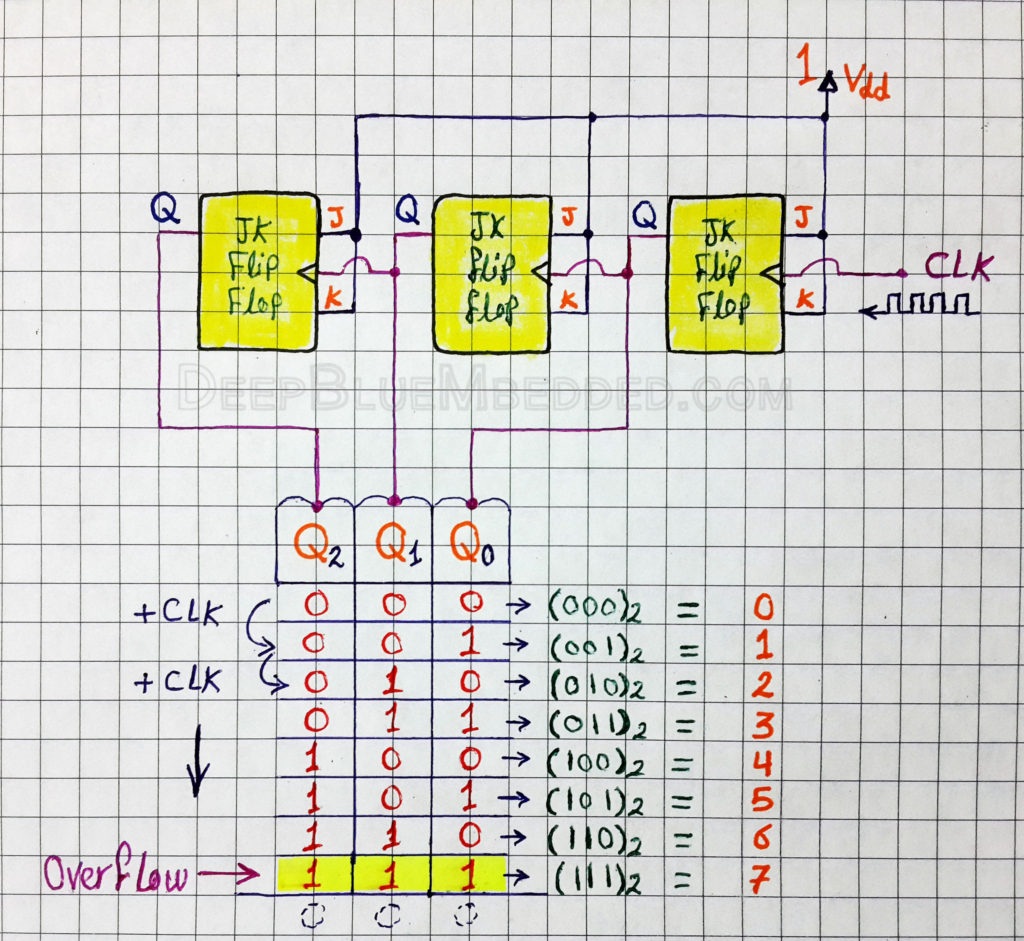 1 Vdd
Q JK Flip Flop J K
Q JK flip flop J K
Q JK Flip Flop J K
CLK
DeepBlueMbedded.com
Q2 Q1 Q0
+CLK 0 0 0 → (000)2 = 0
0 0 1 → (001)2 = 1
+CLK 0 1 0 → (010)2 = 2
0 1 1 → (011)2 = 3
1 0 0 → (100)2 = 4
1 0 1 → (101)2 = 5
1 1 0 → (110)2 = 6
Overflow → 1 1 1 → (111)2 = 7
0 0 0